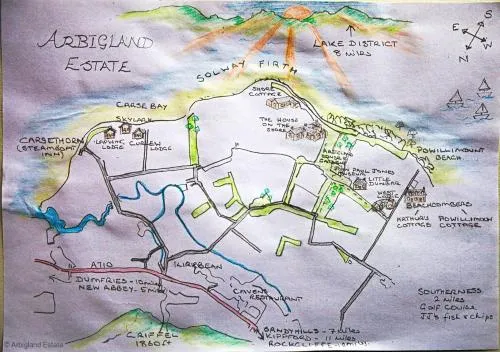 ARBIGLAND
ESTATE
LAKE DISTRICT
8 MILES
S
E
W
N
SOLWAY FIRTH
SHORE
COTTAGE
CARSE BAY
SKYLARK
THE HOUSE
ON THE
SHORE
CARSETHORN
(STEAMBOAT
INN)
LAPWING
LODGE
CURLEW
LODGE
POWILLIMOUNT
BEACH
ARBIGLAND
HOUSE &
GARDEN
JOHN PAUL JONES
MUSEUM
LITTLE
DUNBAR
WEST LODGE
BEACHCOMBERS
ARTHUR'S
COTTAGE
POWILLIMOUNT
COTTAGE
A710
KIRKBEAN
DUMFRIES - 10 MILES
NEW ABBEY - 5 MILES
CAVENS
RESTAURANT
SOUTHERNESS
2 MILES
Golf Course
JJ's fish & chips
CRIFFEL
1860 ft
SANDYHILLS - 7 MILES
KIPPFORD - 11 MILES
ROCKCLIFFE - 10 MILES
© Arbigland Estate